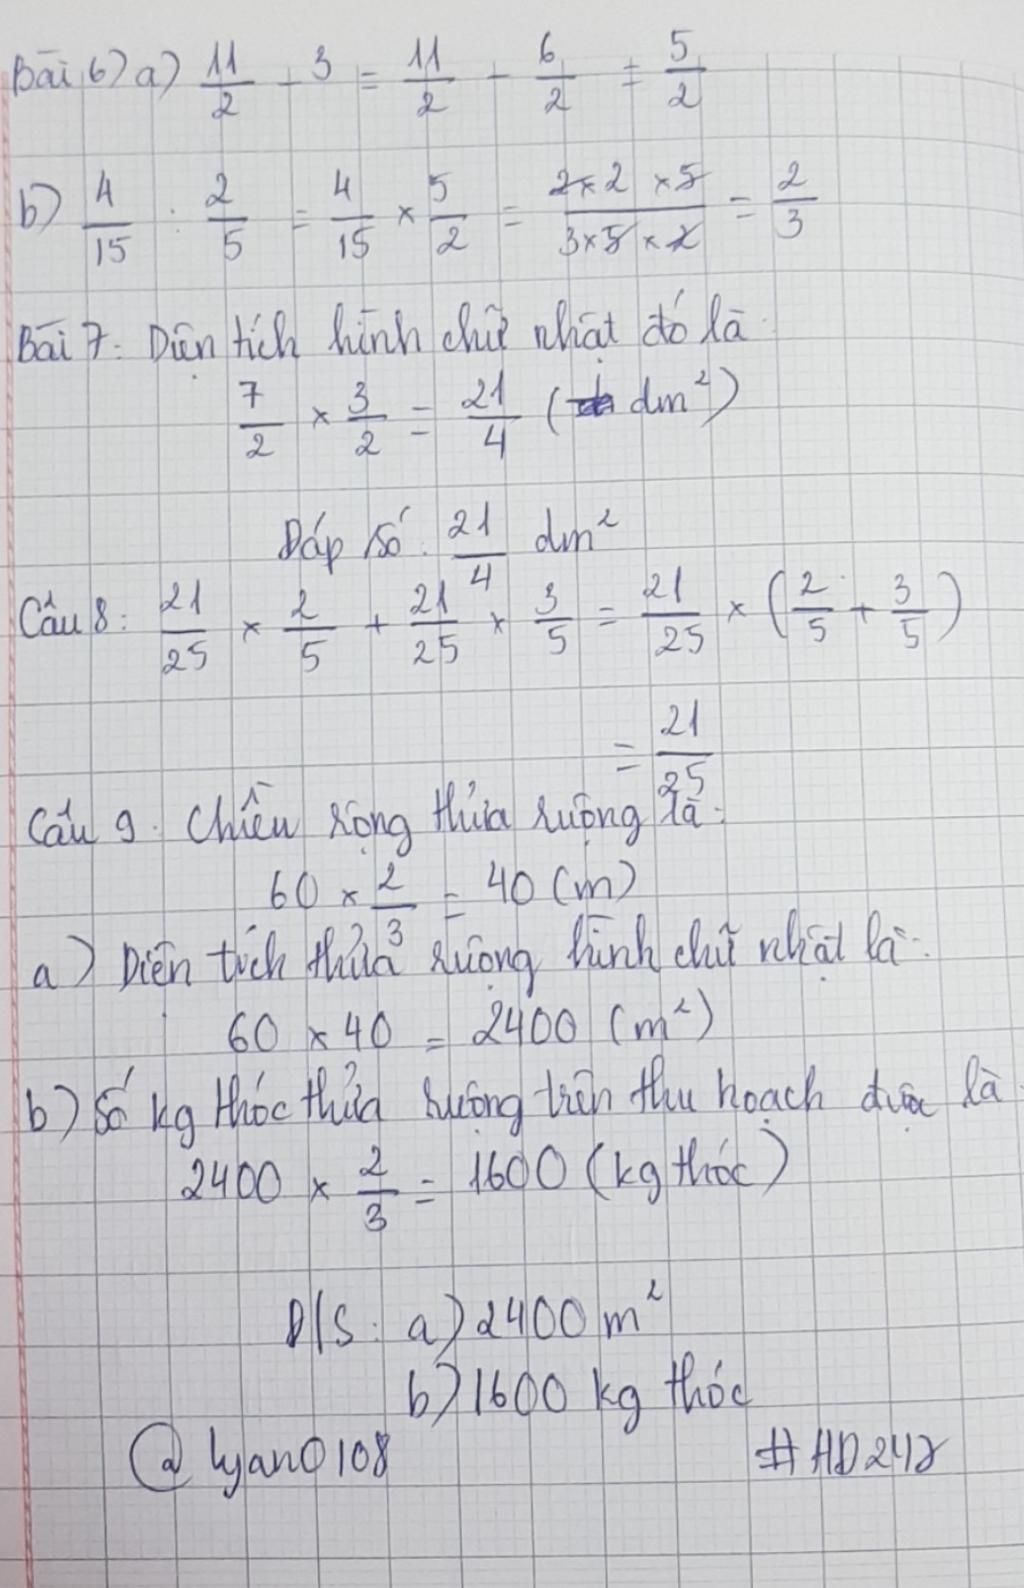 Bài 6) a) 11/2 - 3 = 11/2 - 6/2 = 5/2
b) 4/15 : 2/5 = 4/15 × 5/2 = 2×2×5/3×5×2 = 2/3
Bài 7: Diện tích hình chữ nhật đó là:
7/2 × 3/2 = 21/4 (dm²)
Đáp số: 21/4 dm²
Câu 8: 21/25 × 2/5 + 21/25 × 3/5 = 21/25 × (2/5 + 3/5)
= 21/25
Câu 9: Chiều rộng thửa ruộng là:
60 × 2/3 = 40 (m)
a) Diện tích thửa ruộng hình chữ nhật là:
60 × 40 = 2400 (m²)
b) Số kg thóc thửa ruộng trên thu hoạch được là
2400 × 2/3 = 1600 (kg thóc)
Đ/S: a) 2400 m²
b) 1600 kg thóc
@lyan0108 #HD247